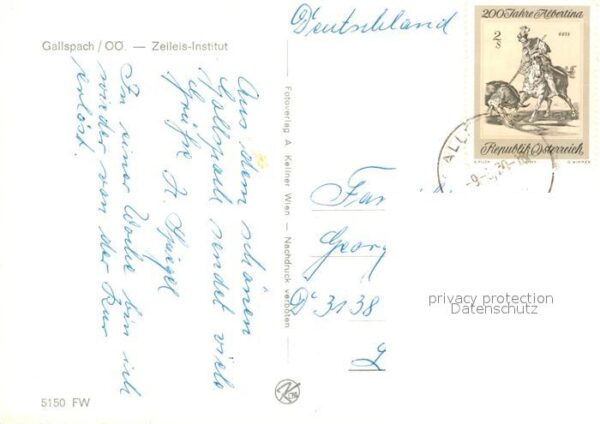 Gallspach / OÖ. — Zeileis-Institut
Aus dem schönen
Gallspach sendet viele
Grüße H. Spiegel
In einer Woche bin ich
wieder von der Kur
erlöst.
Fotoverlag A. Kellner Wien — Nachdruck verboten
Deutschland
200 Jahre Albertina
2 S
Republik Österreich
Fa
Georg
D 3138
privacy protection
Datenschutz
5150 FW